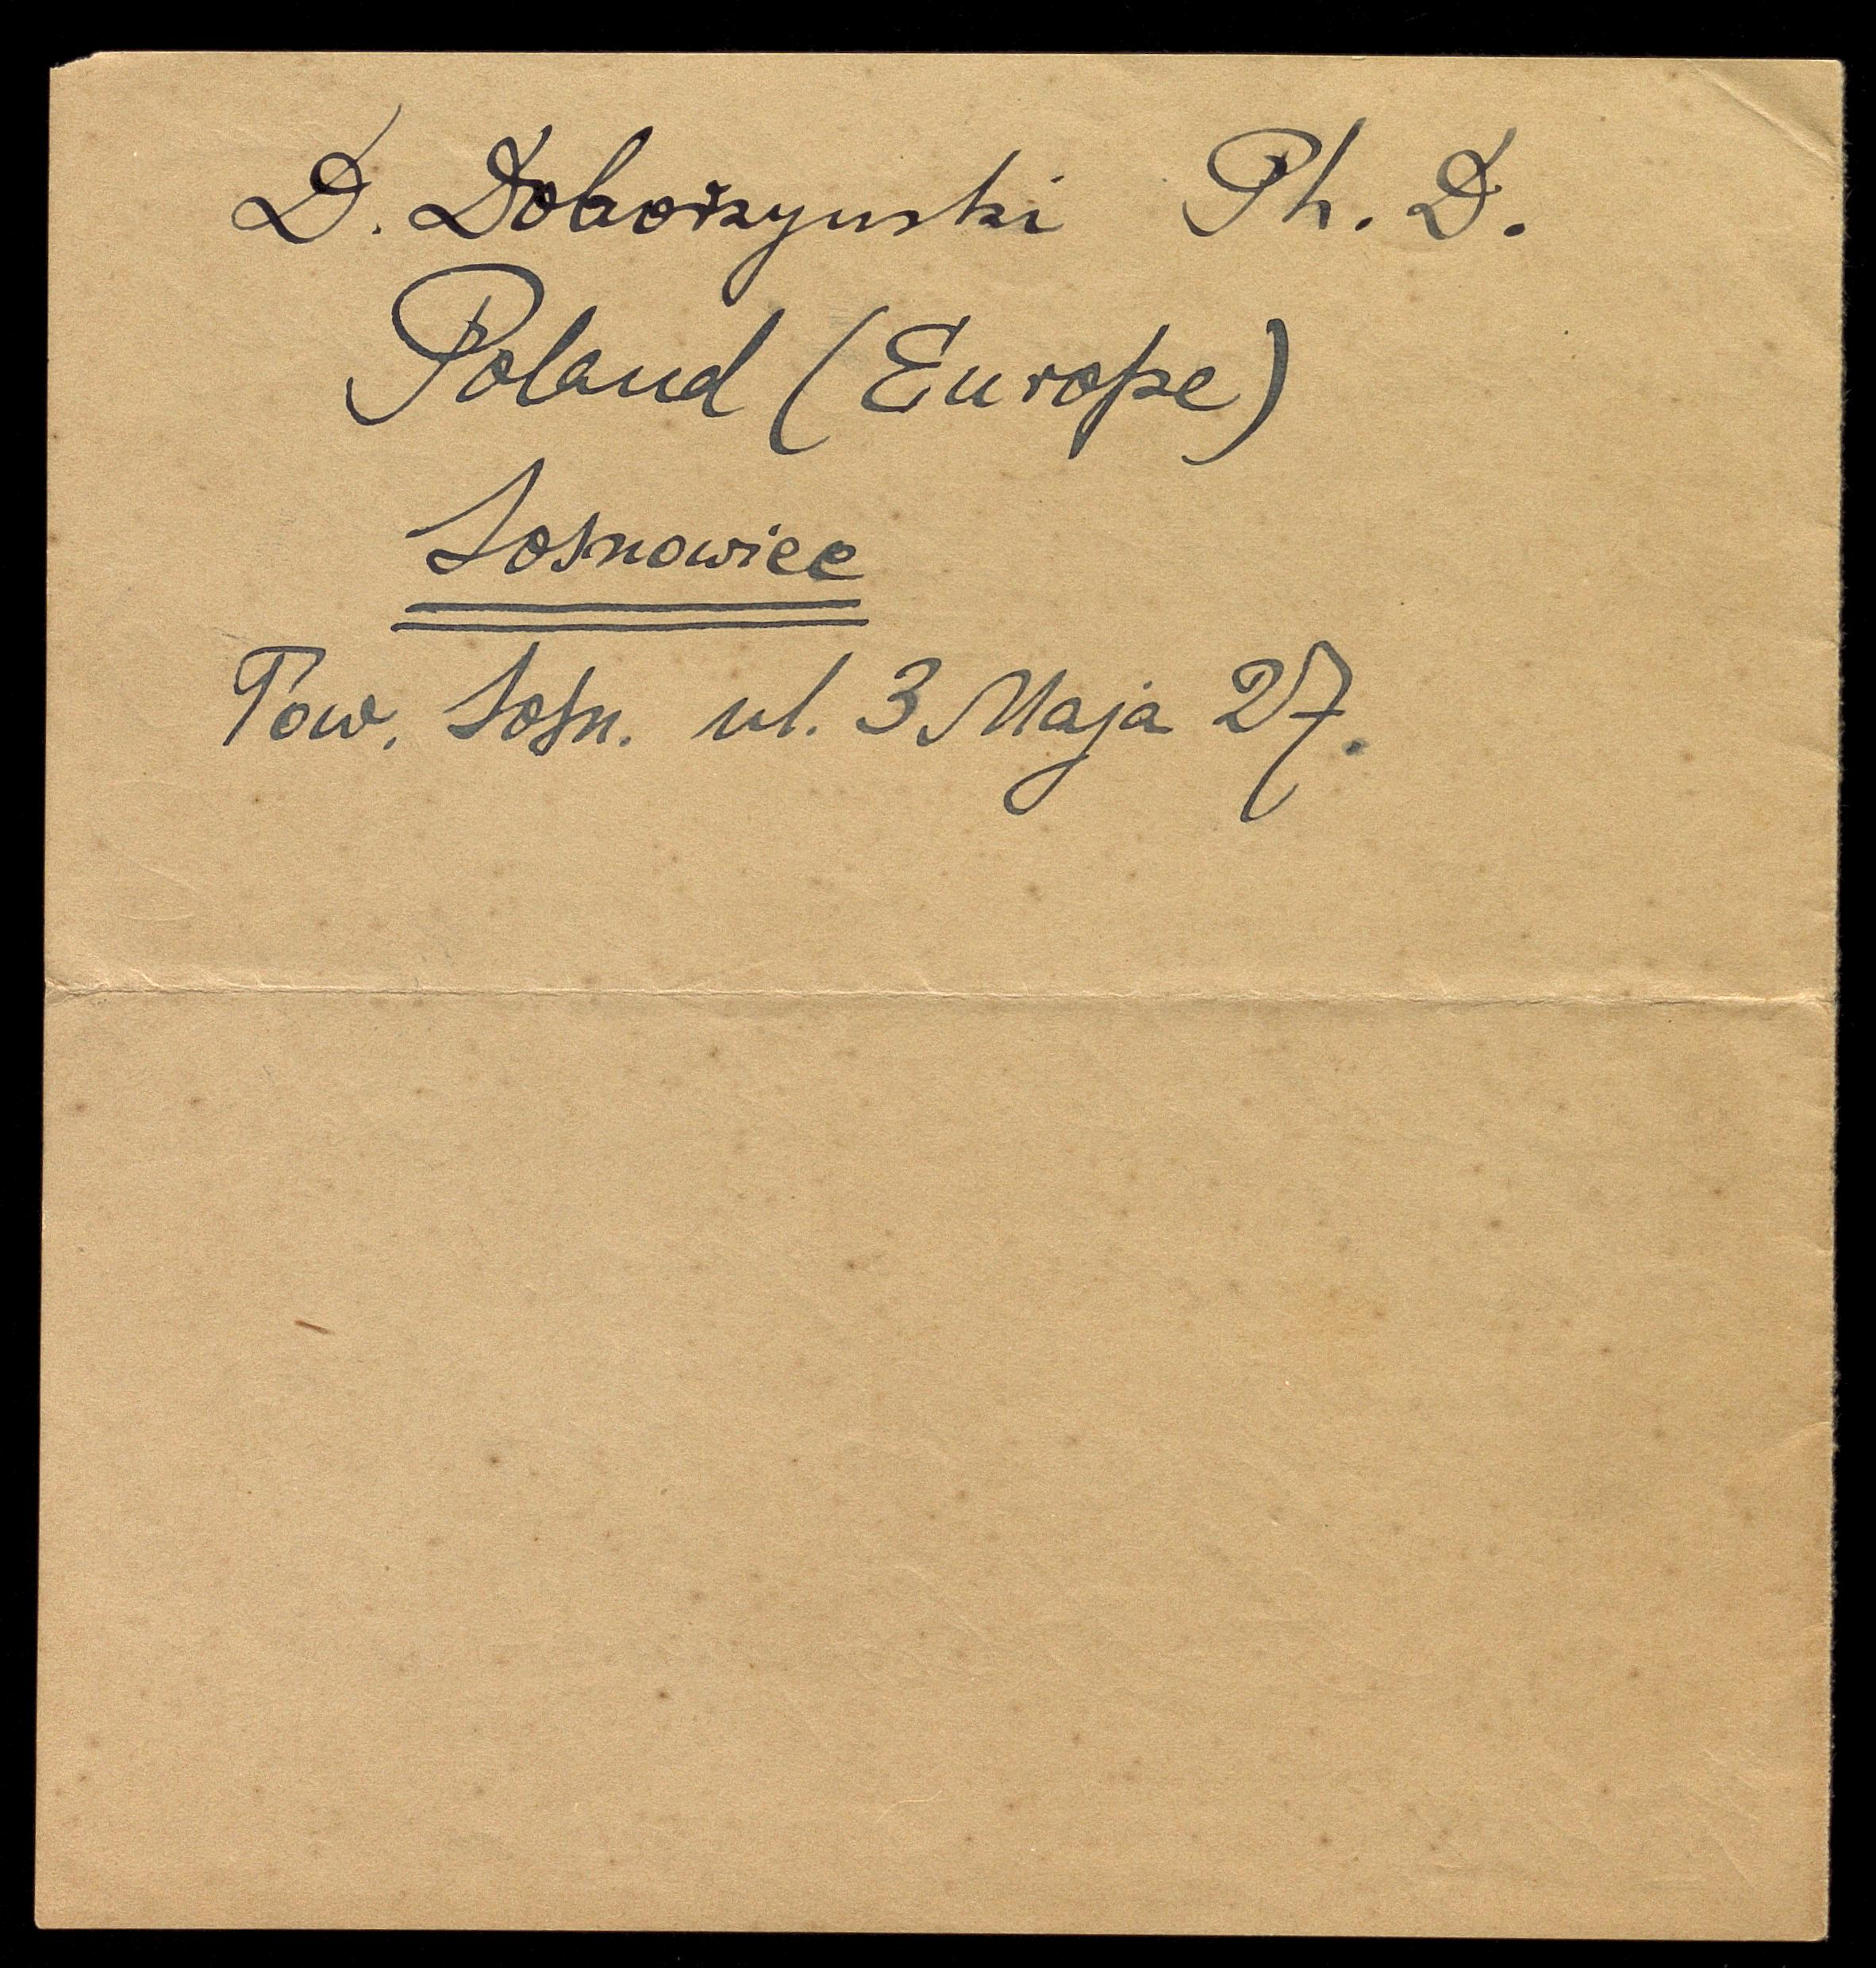 D. Doborzynski Ph. D.
Poland (Europe)
Sosnowiec
Tow. Sosn. ul. 3 Maja 27.